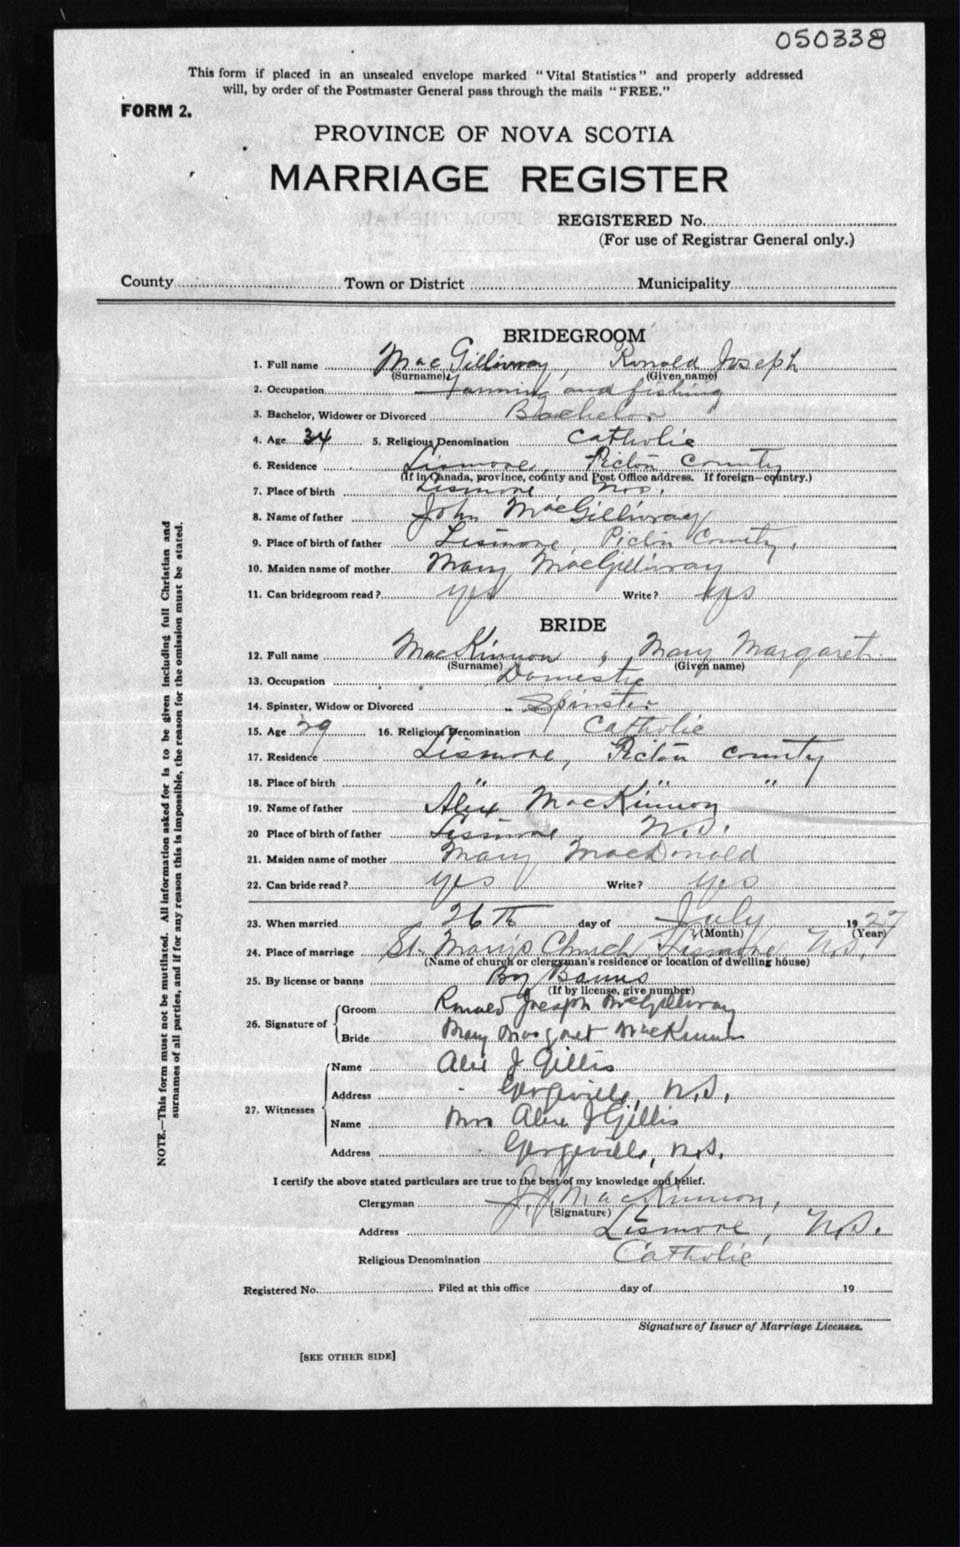 050338
This form if placed in an unsealed envelope marked "Vital Statistics" and properly addressed
will, by order of the Postmaster General pass through the mails "FREE."
FORM 2.
PROVINCE OF NOVA SCOTIA
MARRIAGE REGISTER
REGISTERED No.
(For use of Registrar General only.)
County Town or District Municipality
BRIDEGROOM
1. Full name MacGillivray, Ronald Joseph
(Surname) (Given name)
2. Occupation Farming and fishing
3. Bachelor, Widower or Divorced Bachelor
4. Age 34 5. Religious Denomination Catholic
6. Residence Lismore, Pictou County
(If in Canada, province, county and Post Office address. If foreign—country.)
7. Place of birth Lismore N.S.
8. Name of father John MacGillivray
9. Place of birth of father Lismore, Pictou County,
10. Maiden name of mother Mary MacGillivray
11. Can bridegroom read? yes Write? yes
BRIDE
12. Full name MacKinnon, Mary Margaret
(Surname) (Given name)
13. Occupation Domestic
14. Spinster, Widow or Divorced Spinster
15. Age 29 16. Religious Denomination Catholic
17. Residence Lismore, Pictou County
18. Place of birth " " "
19. Name of father Alex MacKinnon
20 Place of birth of father Lismore, N.S.
21. Maiden name of mother Mary MacDonald
22. Can bride read? yes Write? yes
23. When married 26th day of July 1927
(Month) (Year)
24. Place of marriage St. Mary's Church Lismore, N.S.
(Name of church or clergyman's residence or location of dwelling house)
25. By license or banns By Banns
(If by license, give number)
26. Signature of Groom Ronald Joseph McGillivray
Bride Mary Margret MacKinnon
27. Witnesses Name Alex J Gillis
Address Georgeville, N.S.
Name Mrs Alex J Gillis
Address Georgeville, N.S.
I certify the above stated particulars are true to the best of my knowledge and belief.
Clergyman J. J. MacKinnon,
(Signature)
Address Lismore, N.S.
Religious Denomination Catholic
Registered No. Filed at this office day of 19
Signature of Issuer of Marriage Licenses.
[SEE OTHER SIDE]
NOTE.—This form must not be mutilated. All information asked for is to be given including full Christian and
surnames of all parties, and if for any reason this is impossible, the reason for the omission must be stated.